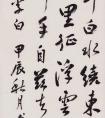 白水繞東
里征浮雲
手自茲去
李白 甲辰秋月